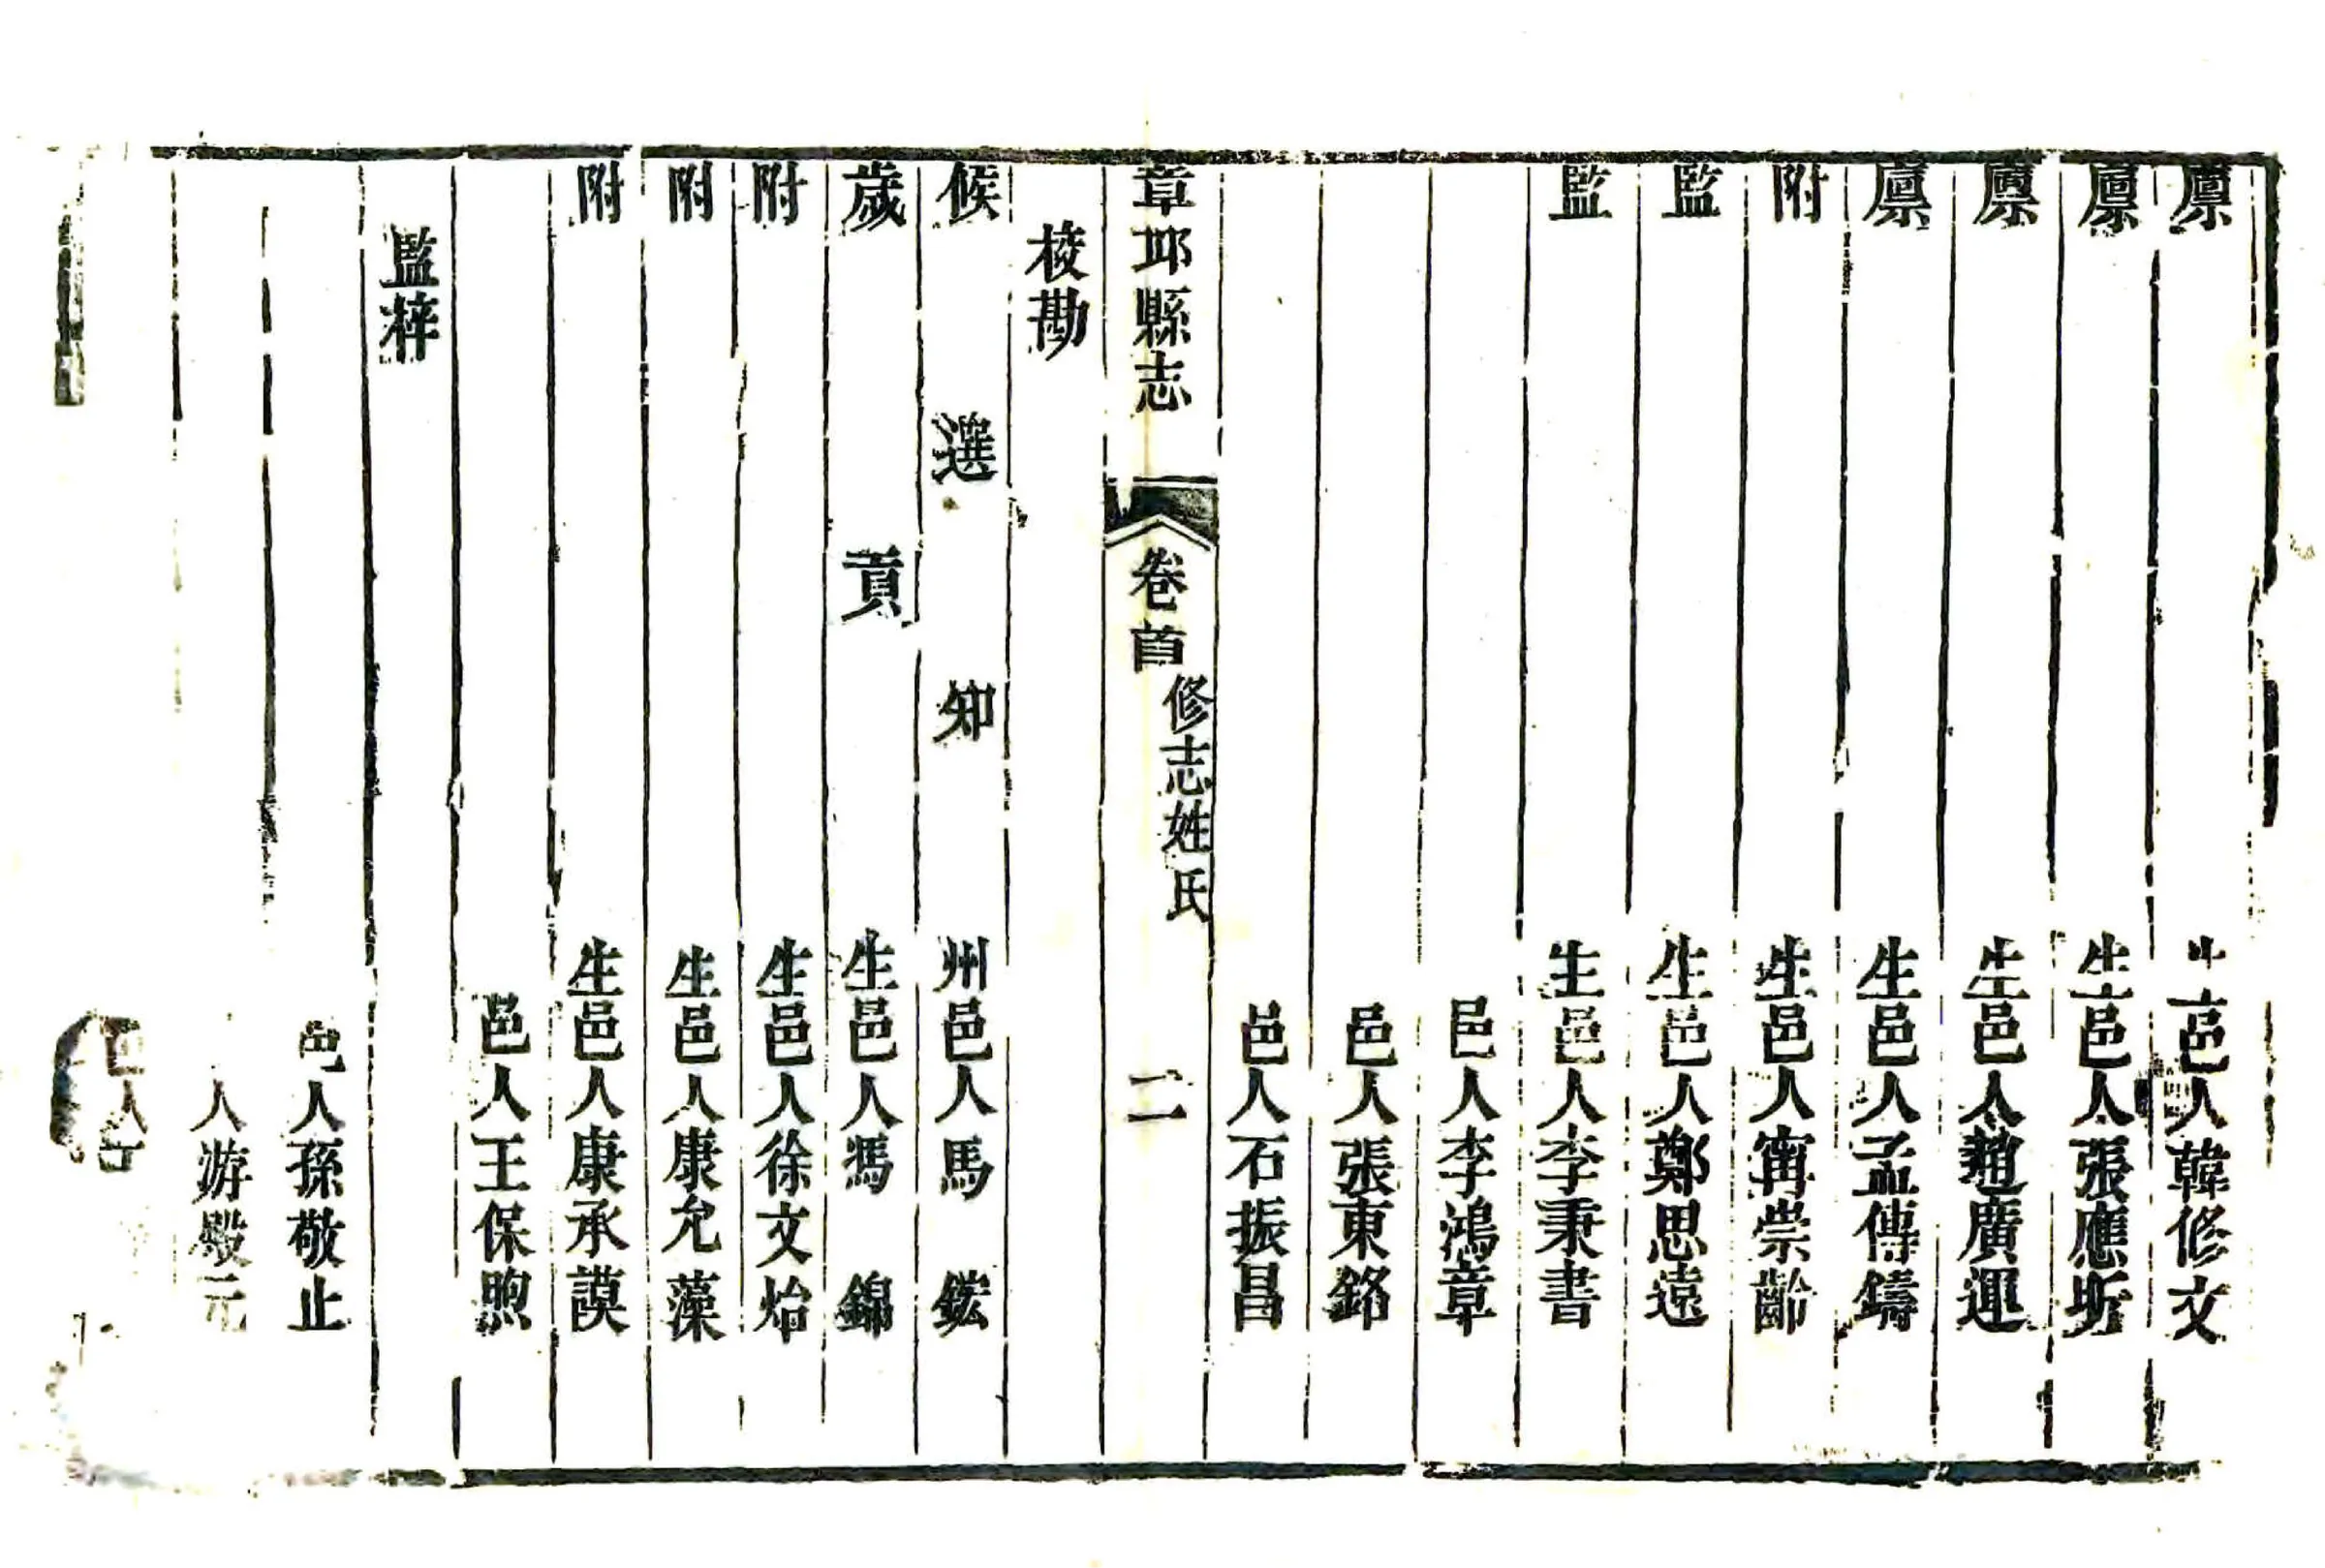 廪生邑人韓修文
廪生邑人張應斯
廪生邑人趙廣運
廪生邑人孟傳鑄
附生邑人甯崇齡
監生邑人鄭思遠
監生邑人李秉書
邑人李鴻章
邑人張東銘
邑人石振昌
章邱縣志 卷首 修志姓氏 二
校勘
候選知州邑人馬鋐
歲貢生邑人馮錦
附生邑人徐文炲
附生邑人康允藻
附生邑人康承謨
邑人王保煦
監梓
邑人孫敬止
人游殿元
邑人